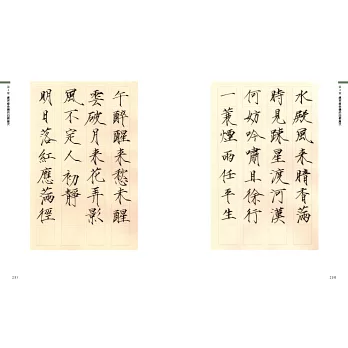 水殿風来暗香滿
時見疎星渡河漢
何妨吟嘯且徐行
一蓑煙雨任平生
午醉醒来愁未醒
雲破月来花弄影
風不定人初靜
明日落紅應滿徑